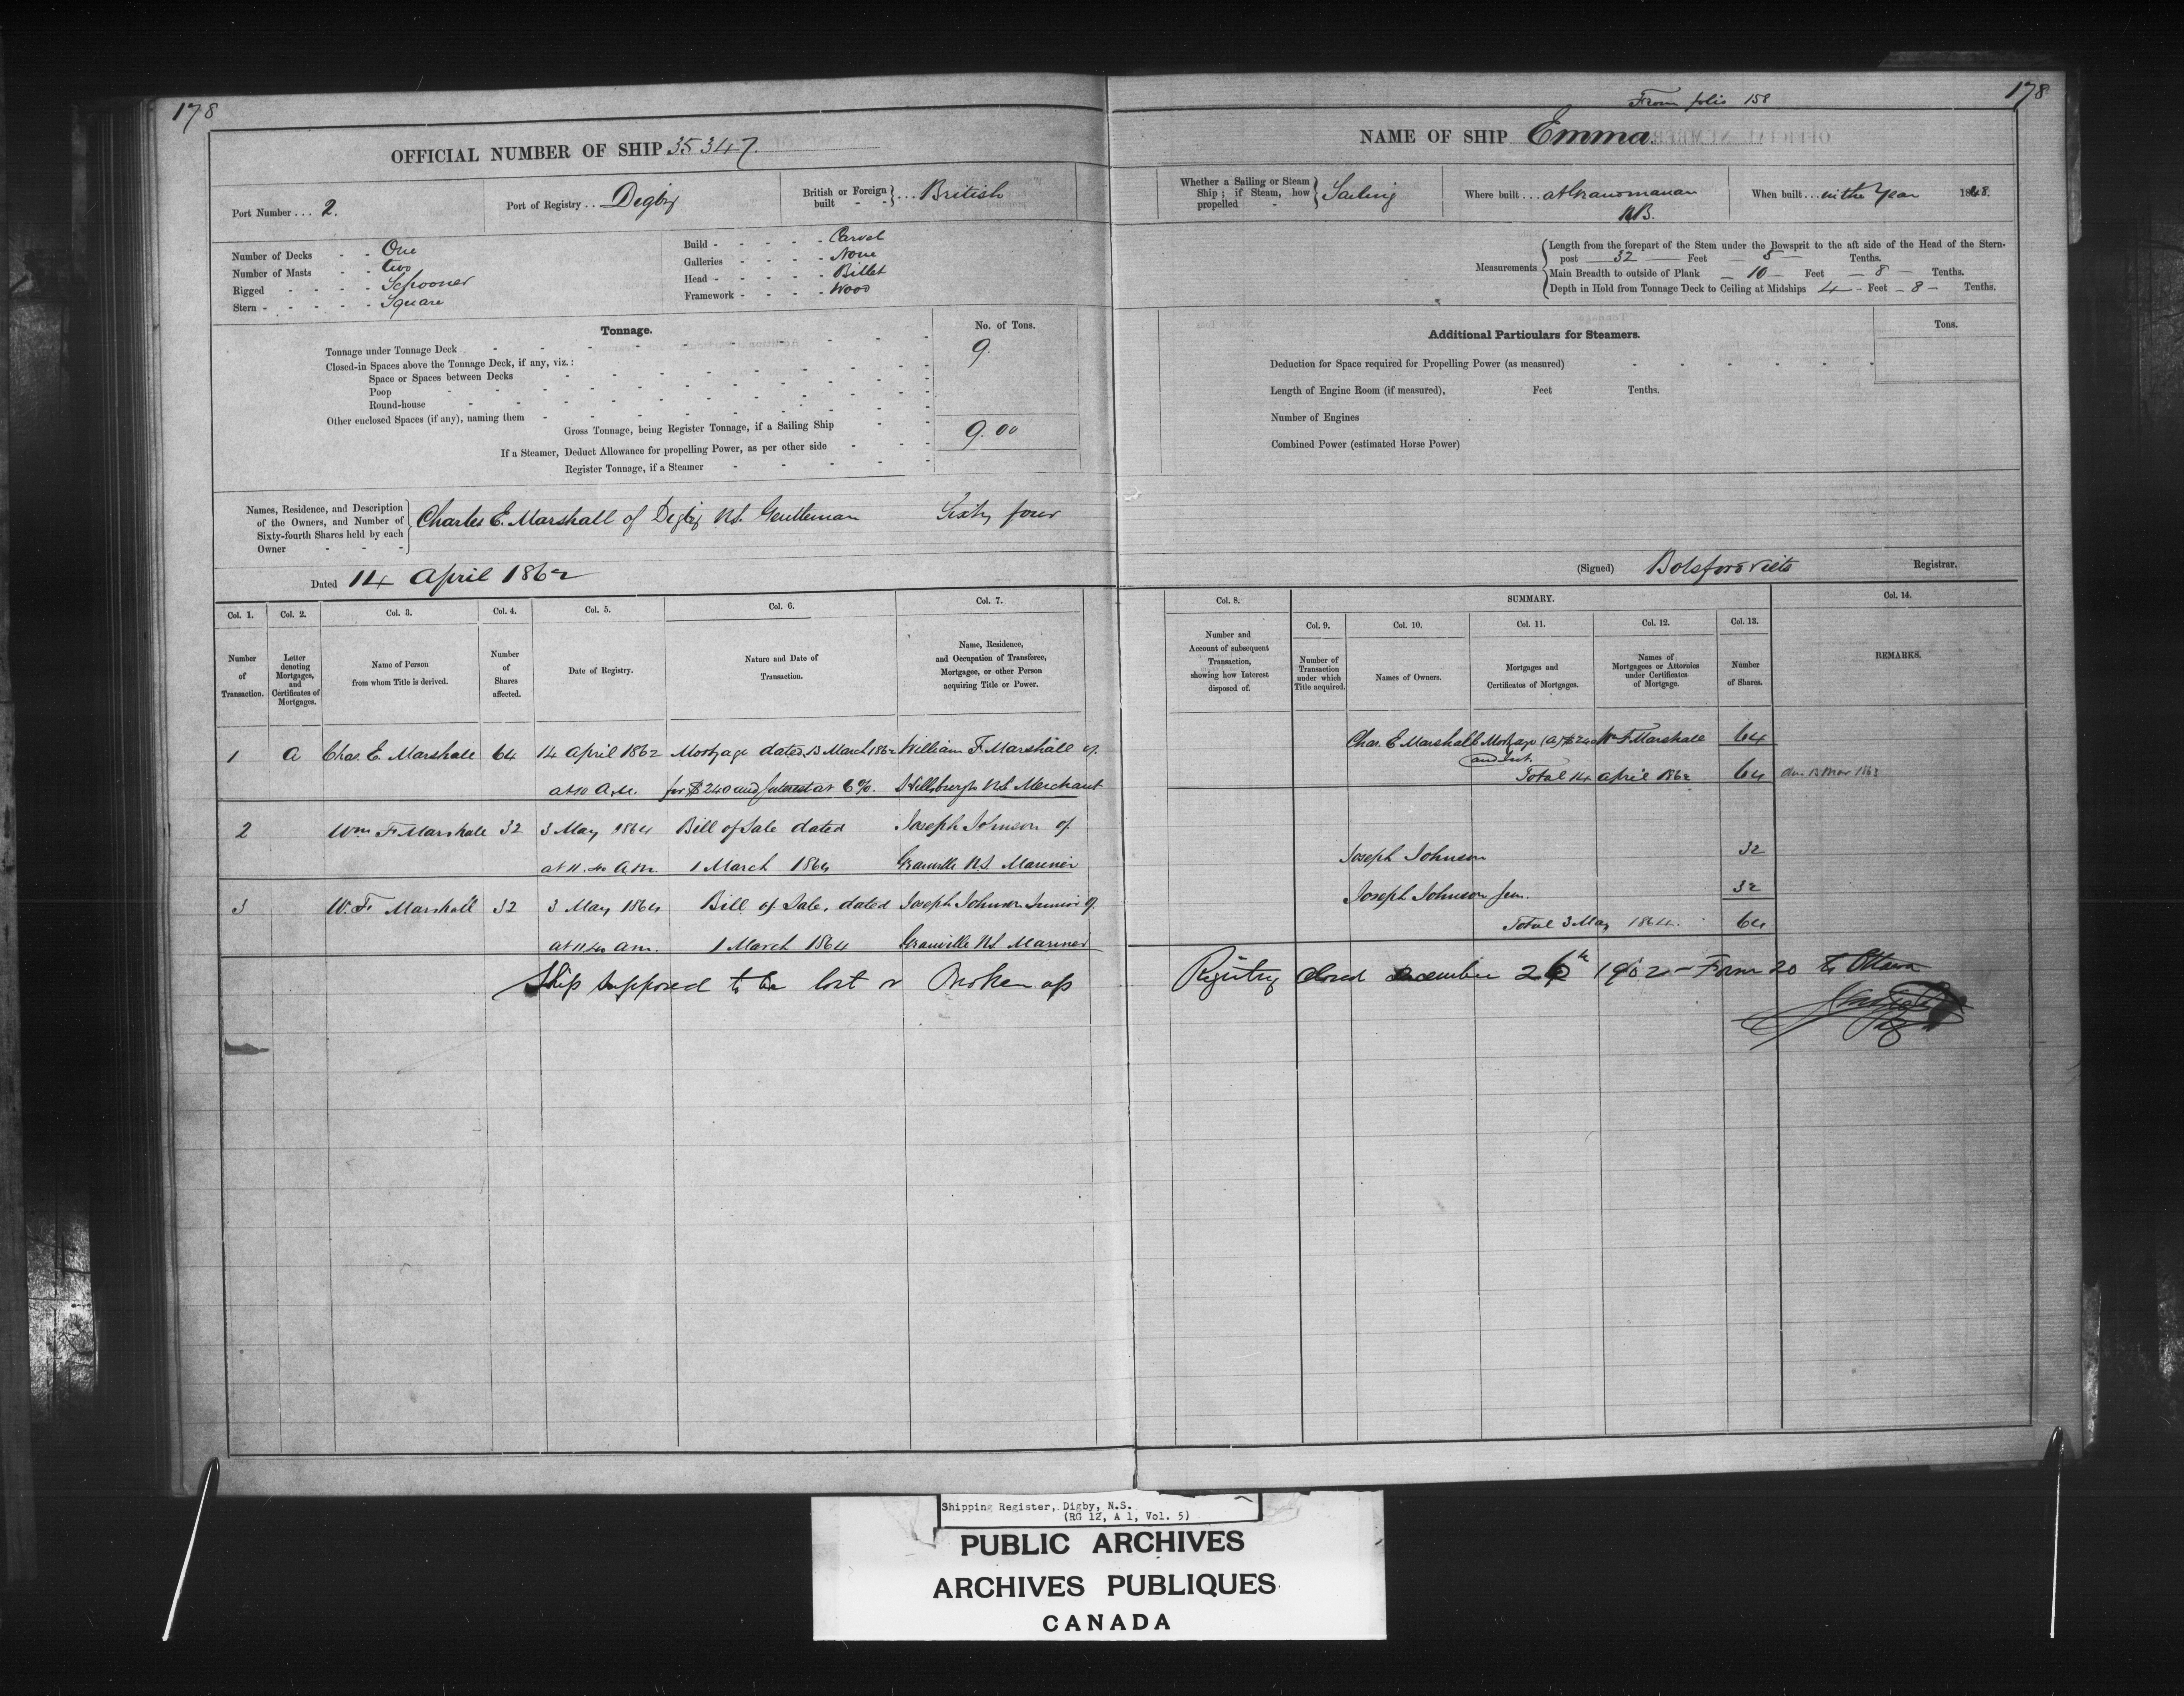 178
OFFICIAL NUMBER OF SHIP 35347.
Port Number ... 2.
Port of Registry .. Digby
British or Foreign built - - } ... British
Number of Decks - - One
Number of Masts - - two
Rigged - - - - Schooner
Stern - - - - - Square
Build - - - - - Carvel
Galleries - - - - None
Head - - - - - Billet
Framework - - - - Wood
Tonnage.
No. of Tons.
Tonnage under Tonnage Deck 9.
Closed-in Spaces above the Tonnage Deck, if any, viz.:
Space or Spaces between Decks
Poop
Round-house
Other enclosed Spaces (if any), naming them
Gross Tonnage, being Register Tonnage, if a Sailing Ship 9.00
If a Steamer, Deduct Allowance for propelling Power, as per other side
Register Tonnage, if a Steamer
Names, Residence, and Description
of the Owners, and Number of
Sixty-fourth Shares held by each
Owner - - -
Charles E. Marshall of Digby N.S. Gentleman Sixty four
Dated 14 April 1862
Col. 1. Col. 2. Col. 3. Col. 4. Col. 5. Col. 6. Col. 7.
Number of Transaction.
Letter denoting Mortgages, and Certificates of Mortgages.
Name of Person from whom Title is derived.
Number of Shares affected.
Date of Registry.
Nature and Date of Transaction.
Name, Residence, and Occupation of Transferee, Mortgagee, or other Person acquiring Title or Power.
1 A Chas. E. Marshall 64 14 April 1862 Mortgage dated 13 March 1862 William F. Marshall of
at 10 A.M. for $240 and Interest at 6%. N.S. Merchant
2 Wm F. Marshall 32 3 May 1864 Bill of Sale dated Joseph Johnson of
at 11.40 A.M. 1 March 1864 Granville N.S. Mariner
3 W. F. Marshall 32 3 May 1864 Bill of Sale, dated Joseph Johnson Junior of
at 11.40 am. 1 March 1864 Granville N.S. Mariner
Ship supposed to be lost or Broken up
From folio 158
178
NAME OF SHIP Emma.
Whether a Sailing or Steam Ship; if Steam, how propelled - } Sailing
Where built ... at Grandmanan
N.B.
When built ... in the Year 1848.
Measurements
Length from the forepart of the Stem under the Bowsprit to the aft side of the Head of the Stern-
post 32 Feet 8 Tenths.
Main Breadth to outside of Plank 10 Feet 8 Tenths.
Depth in Hold from Tonnage Deck to Ceiling at Midships 4 Feet 8 Tenths.
Additional Particulars for Steamers.
Tons.
Deduction for Space required for Propelling Power (as measured)
Length of Engine Room (if measured), Feet Tenths.
Number of Engines
Combined Power (estimated Horse Power)
(Signed) Botsford Viets Registrar.
Col. 8. SUMMARY. Col. 14.
Col. 9. Col. 10. Col. 11. Col. 12. Col. 13.
Number and Account of subsequent Transaction, showing how Interest disposed of.
Number of Transaction under which Title acquired.
Names of Owners.
Mortgages and Certificates of Mortgages.
Names of Mortgagees or Attornies under Certificates of Mortgage.
Number of Shares.
REMARKS.
Chas. E Marshall Mortgage (A) $240 Wm F Marshall 64
and Int.
Total 14 April 1862 64
Joseph Johnson 32
Joseph Johnson Jun. 32
Total 3 May 1864. 64
Registry closed December 26th 1902 - Form 20 to Ottawa
Shipping Register, Digby, N.S.
(RG 12, A 1, Vol. 5)
PUBLIC ARCHIVES
ARCHIVES PUBLIQUES
CANADA